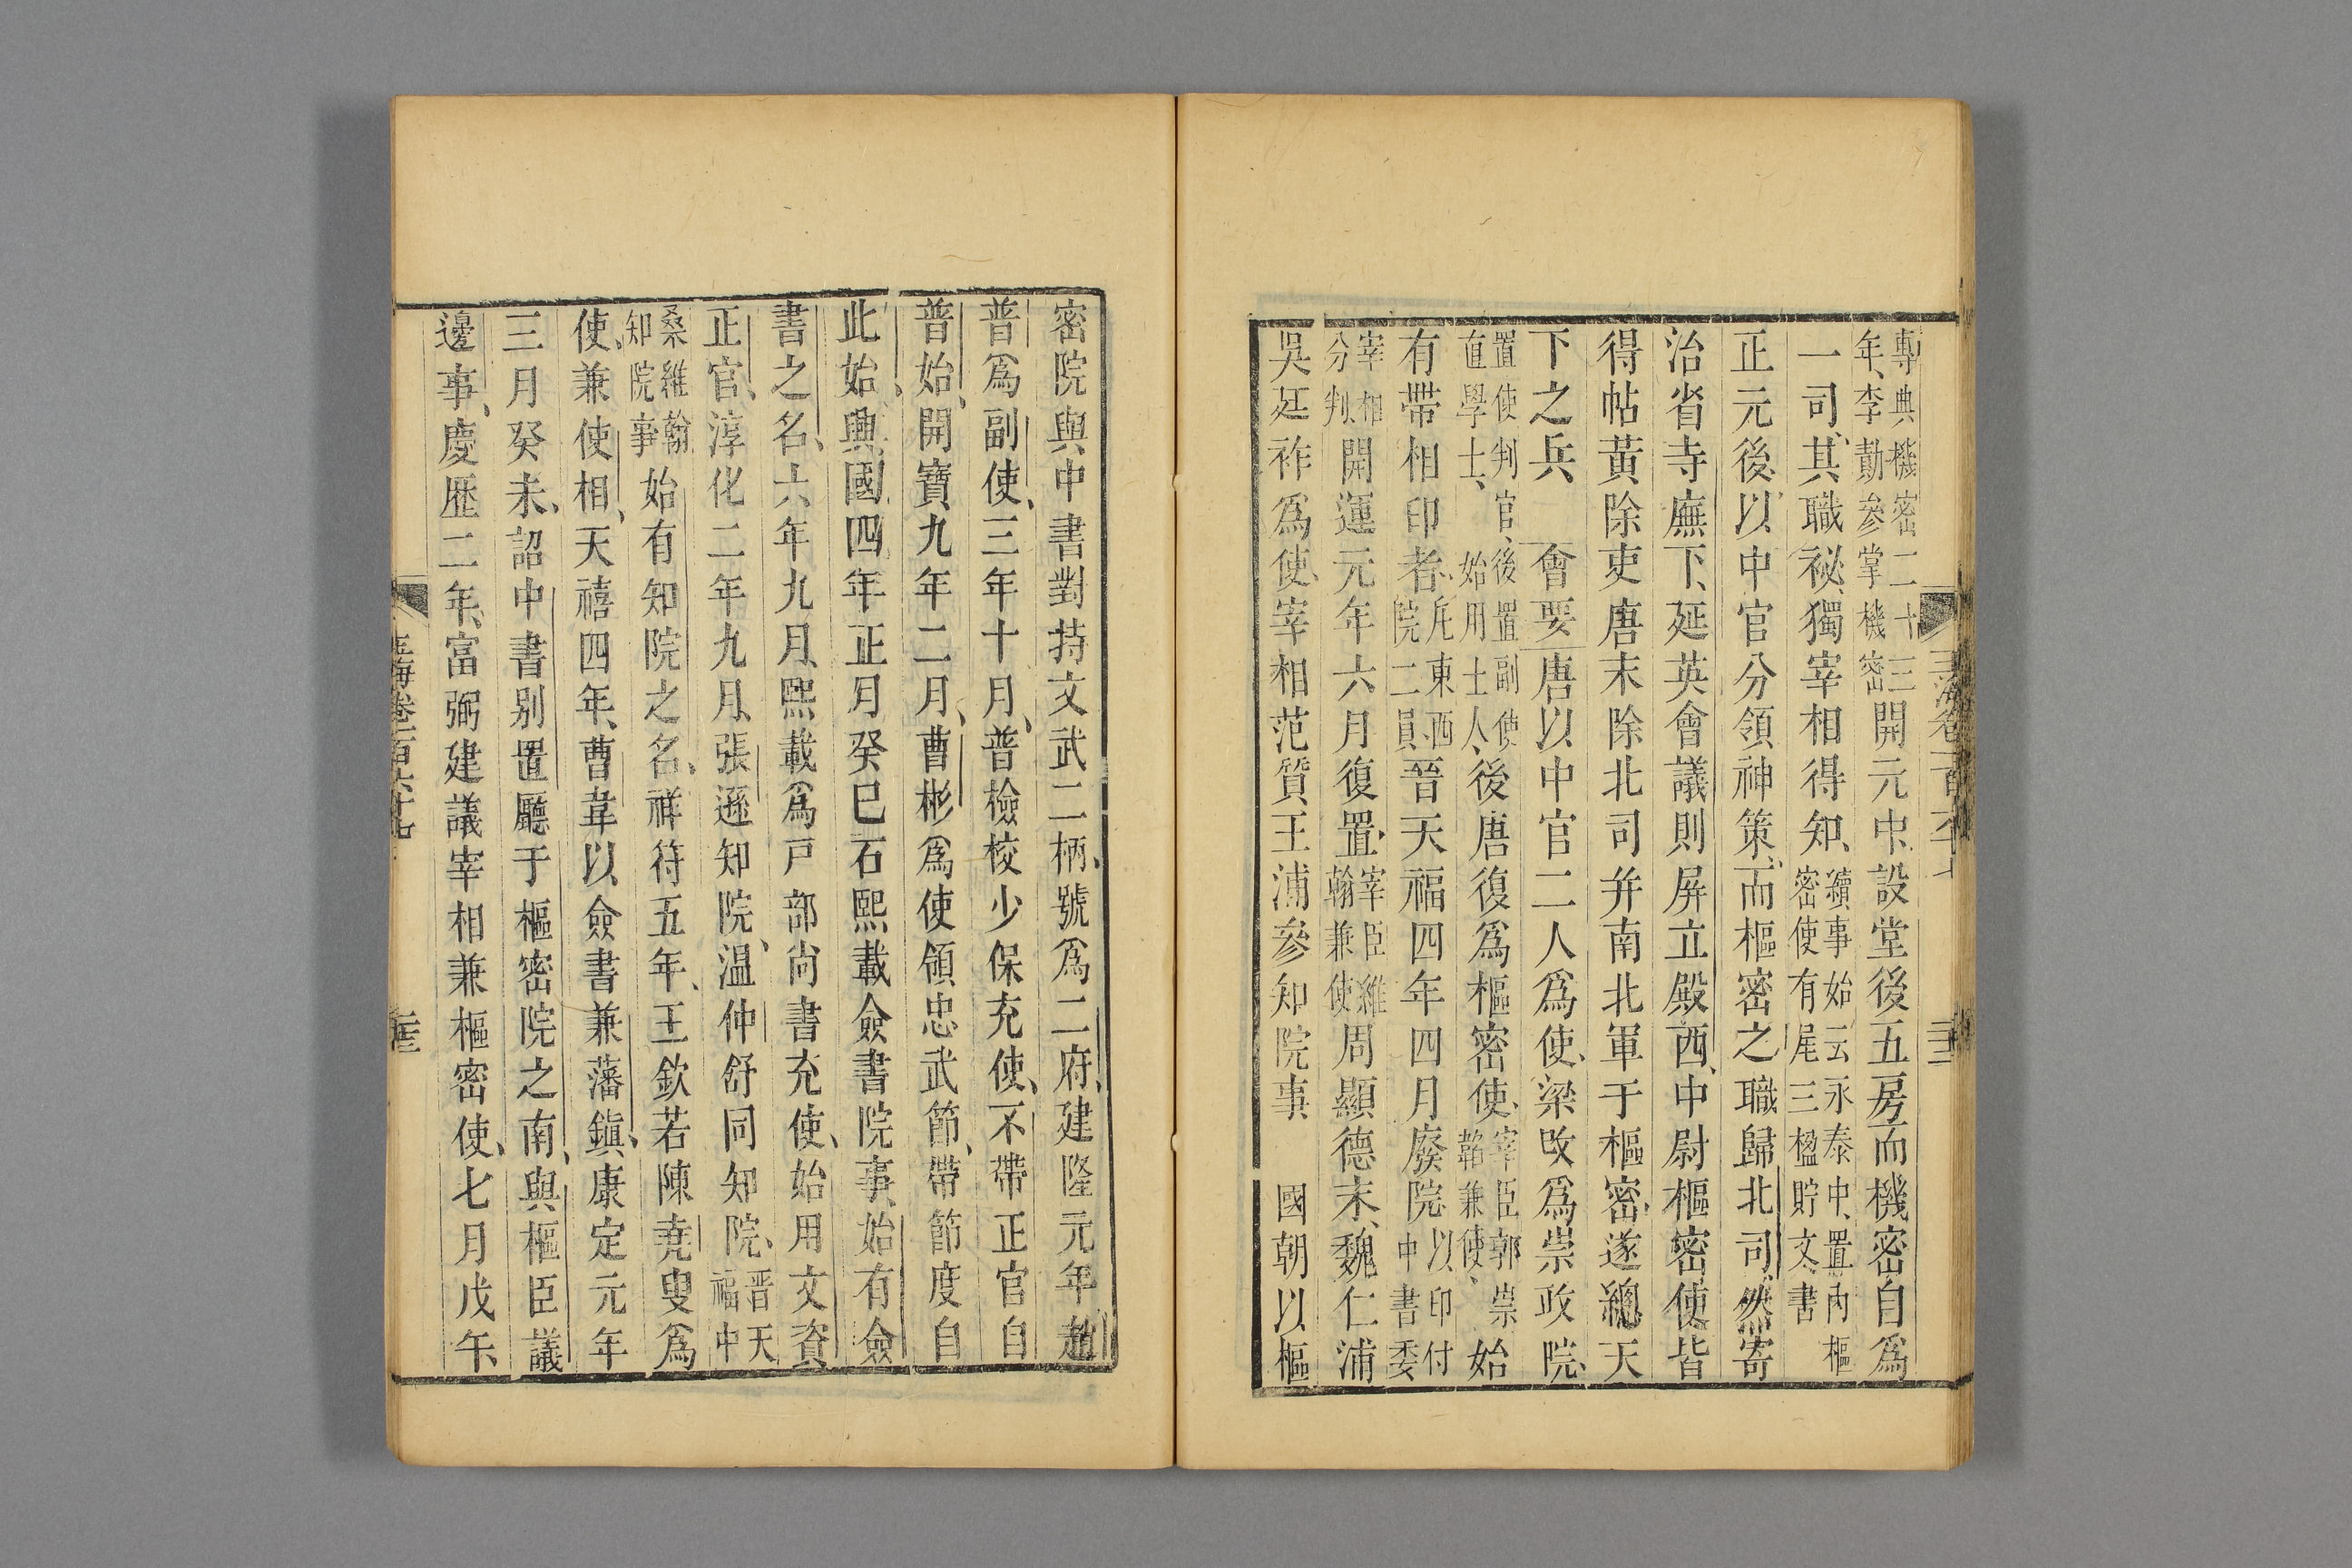 專典機密二十三年李勣參掌機密開元中設堂後五房而機密自爲
一司其職祕獨宰相得知續事始云永泰中置內樞密使有尾三楹貯文書
正元後以中官分領神策而樞密之職歸北司然寄
治省寺廡下延英會議則屏立殿西中尉樞密使皆
得帖黃除吏唐末除北司幷南北軍于樞密遂總天
下之兵 會要唐以中官二人爲使梁改爲崇政院
置使判官後置副使直學士始用士人後唐復爲樞密使宰臣郭崇韜兼使始
有帶相印者院二員東西晉天福四年四月廢院以印付中書委
宰相分判開運元年六月復置宰臣維翰兼使周顯德末魏仁浦
吳廷祚爲使宰相范質王溥參知院事 國朝以樞
密院與中書對持文武二柄號爲二府建隆元年趙
普爲副使三年十月普檢校少保充使不帶正官自
普始開寶九年二月曹彬爲使領忠武節帶節度自
此始興國四年正月癸巳石熙載僉書院事始有僉
書之名六年九月熙載爲戸部尚書充使始用文資
正官淳化二年九月張遜知院溫仲舒同知院晉天福中
桑維翰知院事始有知院之名祥符五年王欽若陳堯叟爲
使兼使相天禧四年曹瑋以僉書兼藩鎭康定元年
三月癸未詔中書別置廳于樞密院之南與樞臣議
邊事慶歷二年富弼建議宰相兼樞密使七月戊午